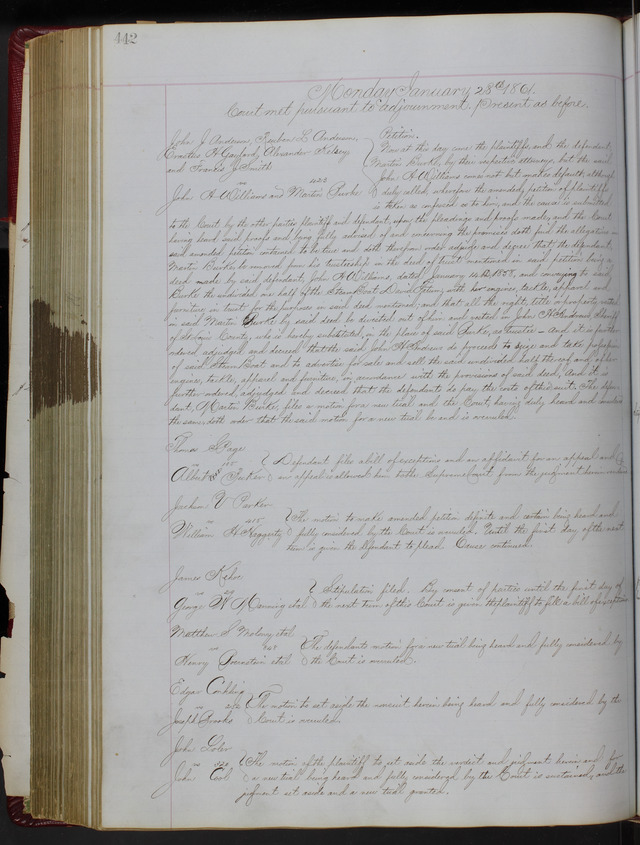 442
Monday January 28th 1861.
Court met pursuant to adjournment. Present as before.
John J Anderson, Reuben L Anderson,
Erastus H Gaylord, Alexander Kelsey
and Francis J Smith
vs 422
John H Williams and Martin Burke
Petition.
Now at this day come the plaintiffs, and the defendant,
Martin Burke, by their respective attorneys, but the said
John H Williams comes not but makes default, although
duly called, wherefore the amended petition of plaintiffs
is taken as confessed as to him, and the cause is submitted
to the Court by the other parties plaintiff and defendant, upon the pleadings and proofs made, and the Court
having heard said proofs and being fully advised of and concerning the premises doth find the allegations in
said amended petition contained to be true and doth therefore order adjudge and decree that the defendant,
Martin Burke be removed from his trusteeship in the deed of trust mentioned in said petition being a
deed made by said defendant, John H Williams, dated January 14th 1858, and conveying to said
Burke the undivided one half of the Steam Boat David Tatum with her engines, tackle, apparel and
furniture in trust for the purposes in said deed mentioned, and that all the right, title or property vested
in said Martin Burke by said deed be divested out of him and vested in John H Andrews Sheriff
of St Louis County, who is hereby substituted, in the place of said Burke, as trustee – And it is further
ordered, adjudged and decreed that the said John H Andrews do proceed to seize and take possession
of said Steam Boat and to advertise for sale and sell the said undivided half thereof and of her
engines, tackle, apparel and furniture, in accordance with the provisions of said deed, And it is
further ordered, adjudged and decreed that the defendants do pay the costs of this suit. The defen-
dant, Martin Burke, files a motion for a new trial and the Court, having duly heard and considered
the same, doth order that the said motion for a new trial be and is overruled.
Thomas S Page
vs
Albert Parker
Defendant files a bill of exceptions and an affidavit for an appeal and
an appeal is allowed him to the Supreme Court from the judgment herein rendered
V Parker
vs 415
William H Haggerty
The motion to make amended petition definite and certain being heard and
fully considered by the Court is overruled. Until the first day of the next
term is given the defendant to plead. Cause continued.
James Kehoe
vs
George W Manning etal
Stipulation filed. By consent of parties until the first day of
the next term of this Court is given the plaintiff to file a bill of exceptions
Matthew S Molony etal
vs 748
Henry etal
The defendants motion for a new trial being heard and fully considered by
the Court is overruled.
Edgar Conkling
vs
Joseph Brooks
The motion to set aside the nonsuit herein being heard and fully considered by the
Court is overruled
John Goler
vs
John Cool
The motion of the plaintiff to set aside the verdict and judgment herein and for
a new trial being heard and fully considered by the Court is sustained, and the
judgment set aside and a new trial granted.